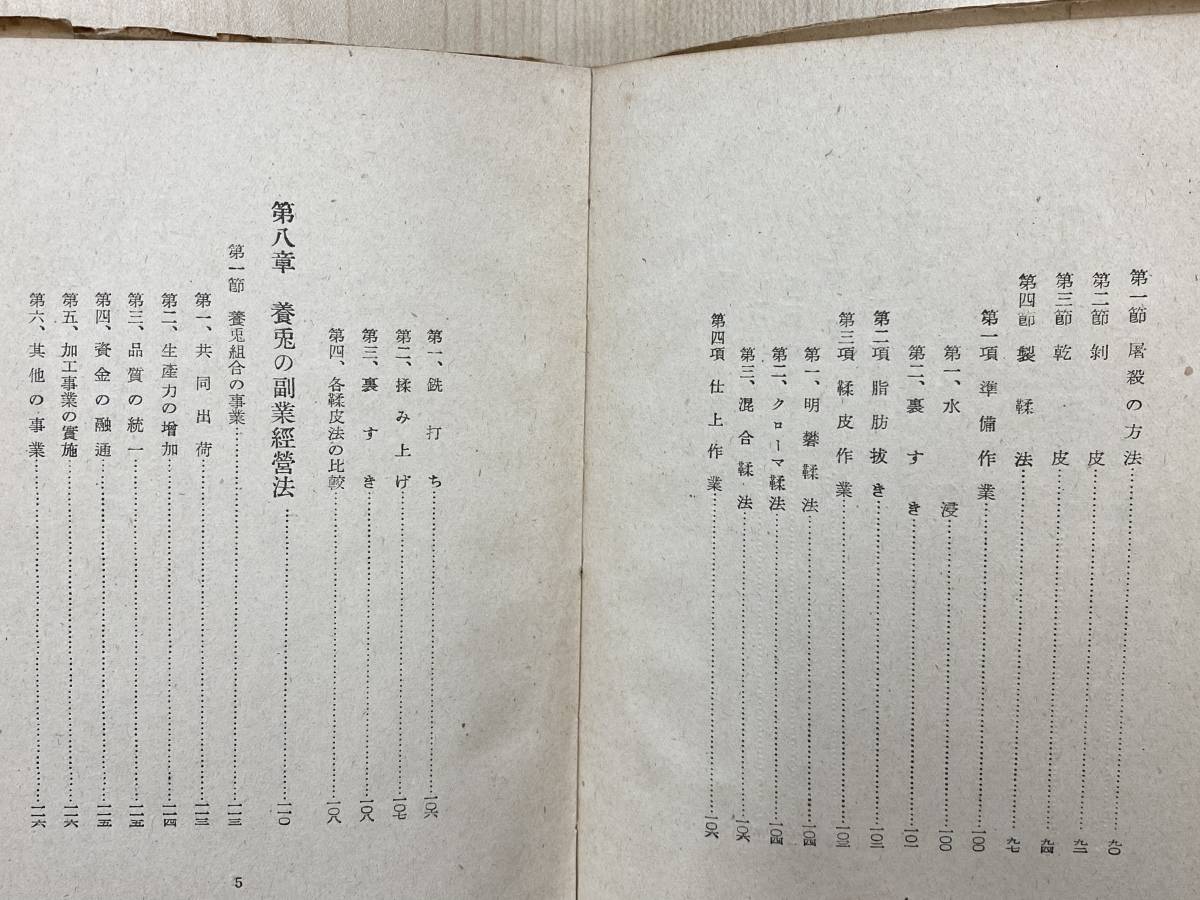 第一節 屠殺の方法……九〇
第二節 剝皮……九二
第三節 乾皮……九四
第四節 製鞣法……九七
第一項 準備作業……一〇〇
第一、水浸……一〇〇
第二、裏すき……一〇一
第二項 脂肪拔き……一〇二
第三項 鞣皮作業……一〇三
第一、明礬鞣法……一〇四
第二、クローマ鞣法……一〇四
第三、混合鞣法……一〇六
第四項 仕上作業……一〇六
第一、銑打ち……一〇六
第二、揉み上げ……一〇七
第三、裏すき……一〇八
第四、各鞣皮法の比較……一〇八
第八章 養兎の副業經營法……一一〇
第一節 養兎組合の事業……一一三
第一、共同出荷……一一三
第二、生產力の增加……一一四
第三、品質の統一……一一五
第四、資金の融通……一一五
第五、加工事業の實施……一一六
第六、其他の事業……一一六
5